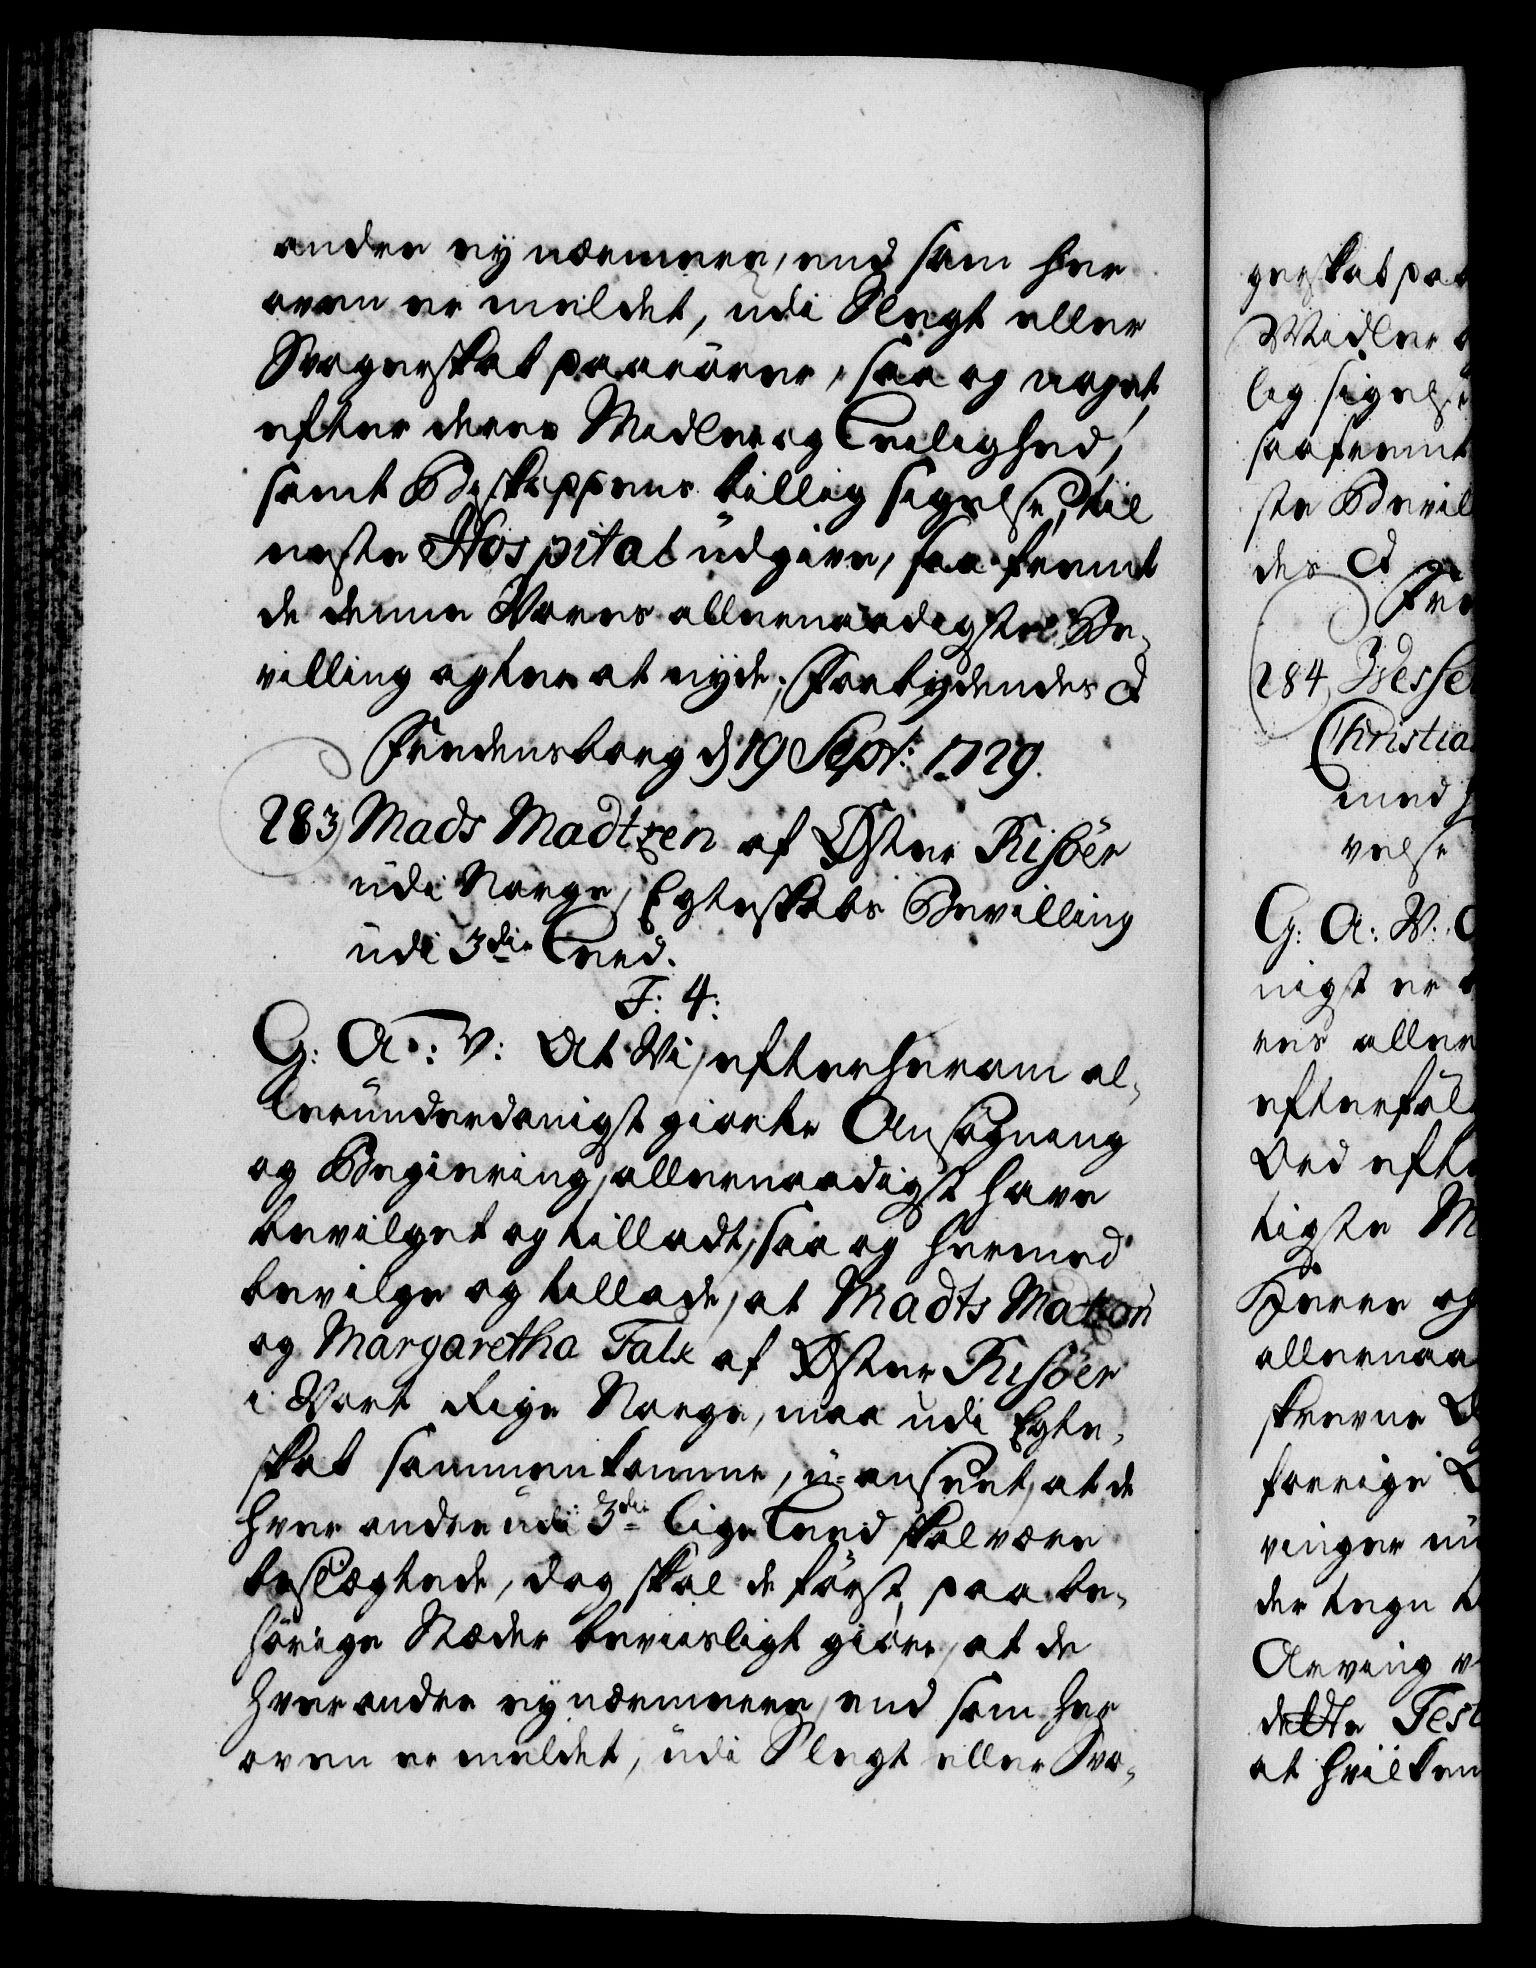 andre ey nærmere, end som her
oven er meldet, udi Slegt eller
Svogerskab paarörer, saa og noget,
efter deres Midler og Leilighed,
samt Biskoppens billig sigelse, til
neste Hospital udgive, saa fremt
de denne Vores allernaadigste Be-
villing agter at nyde; Forbydendes &
Fredensborg d 19 Sept: 1729.
283 Mads Madtzen af Øster Risöer
udi Norge, Egteskabs Bevilling
udi 3die Leed.
F: 4:
G: A: V: At Vi, efter herom al-
lerunderdanigst giorte Ansögning
og Begiering, allernaadigst have
bevilget og tilladt, saa og hermed
bevilge og tillade, at Madts
og Margaretha Falk af Øster Risöer
i Vort Rige Norge, maa udi Egte-
skab sammenkomme, u-anseet, at de
hver andre udi 3die lige Leed skal være
beslægtede, dog skal de först, paa be-
hörige Stæder beviisligt giöre, at de
hver andre ey nærmere, end som her
oven er meldet, udi Slegt eller Svo-
gerskab paa
Midler
lig sigelse
saafremt
ste Bevil
des &
Fre
284 Wessel
Christia
med
velse
G: A: V:
nigst er
res aller
efterföl
Ord efte
tigste M
Herre og
allernaa
skrevne
forrige
vinger
der tegn
Arving
dette Test
at hvilken